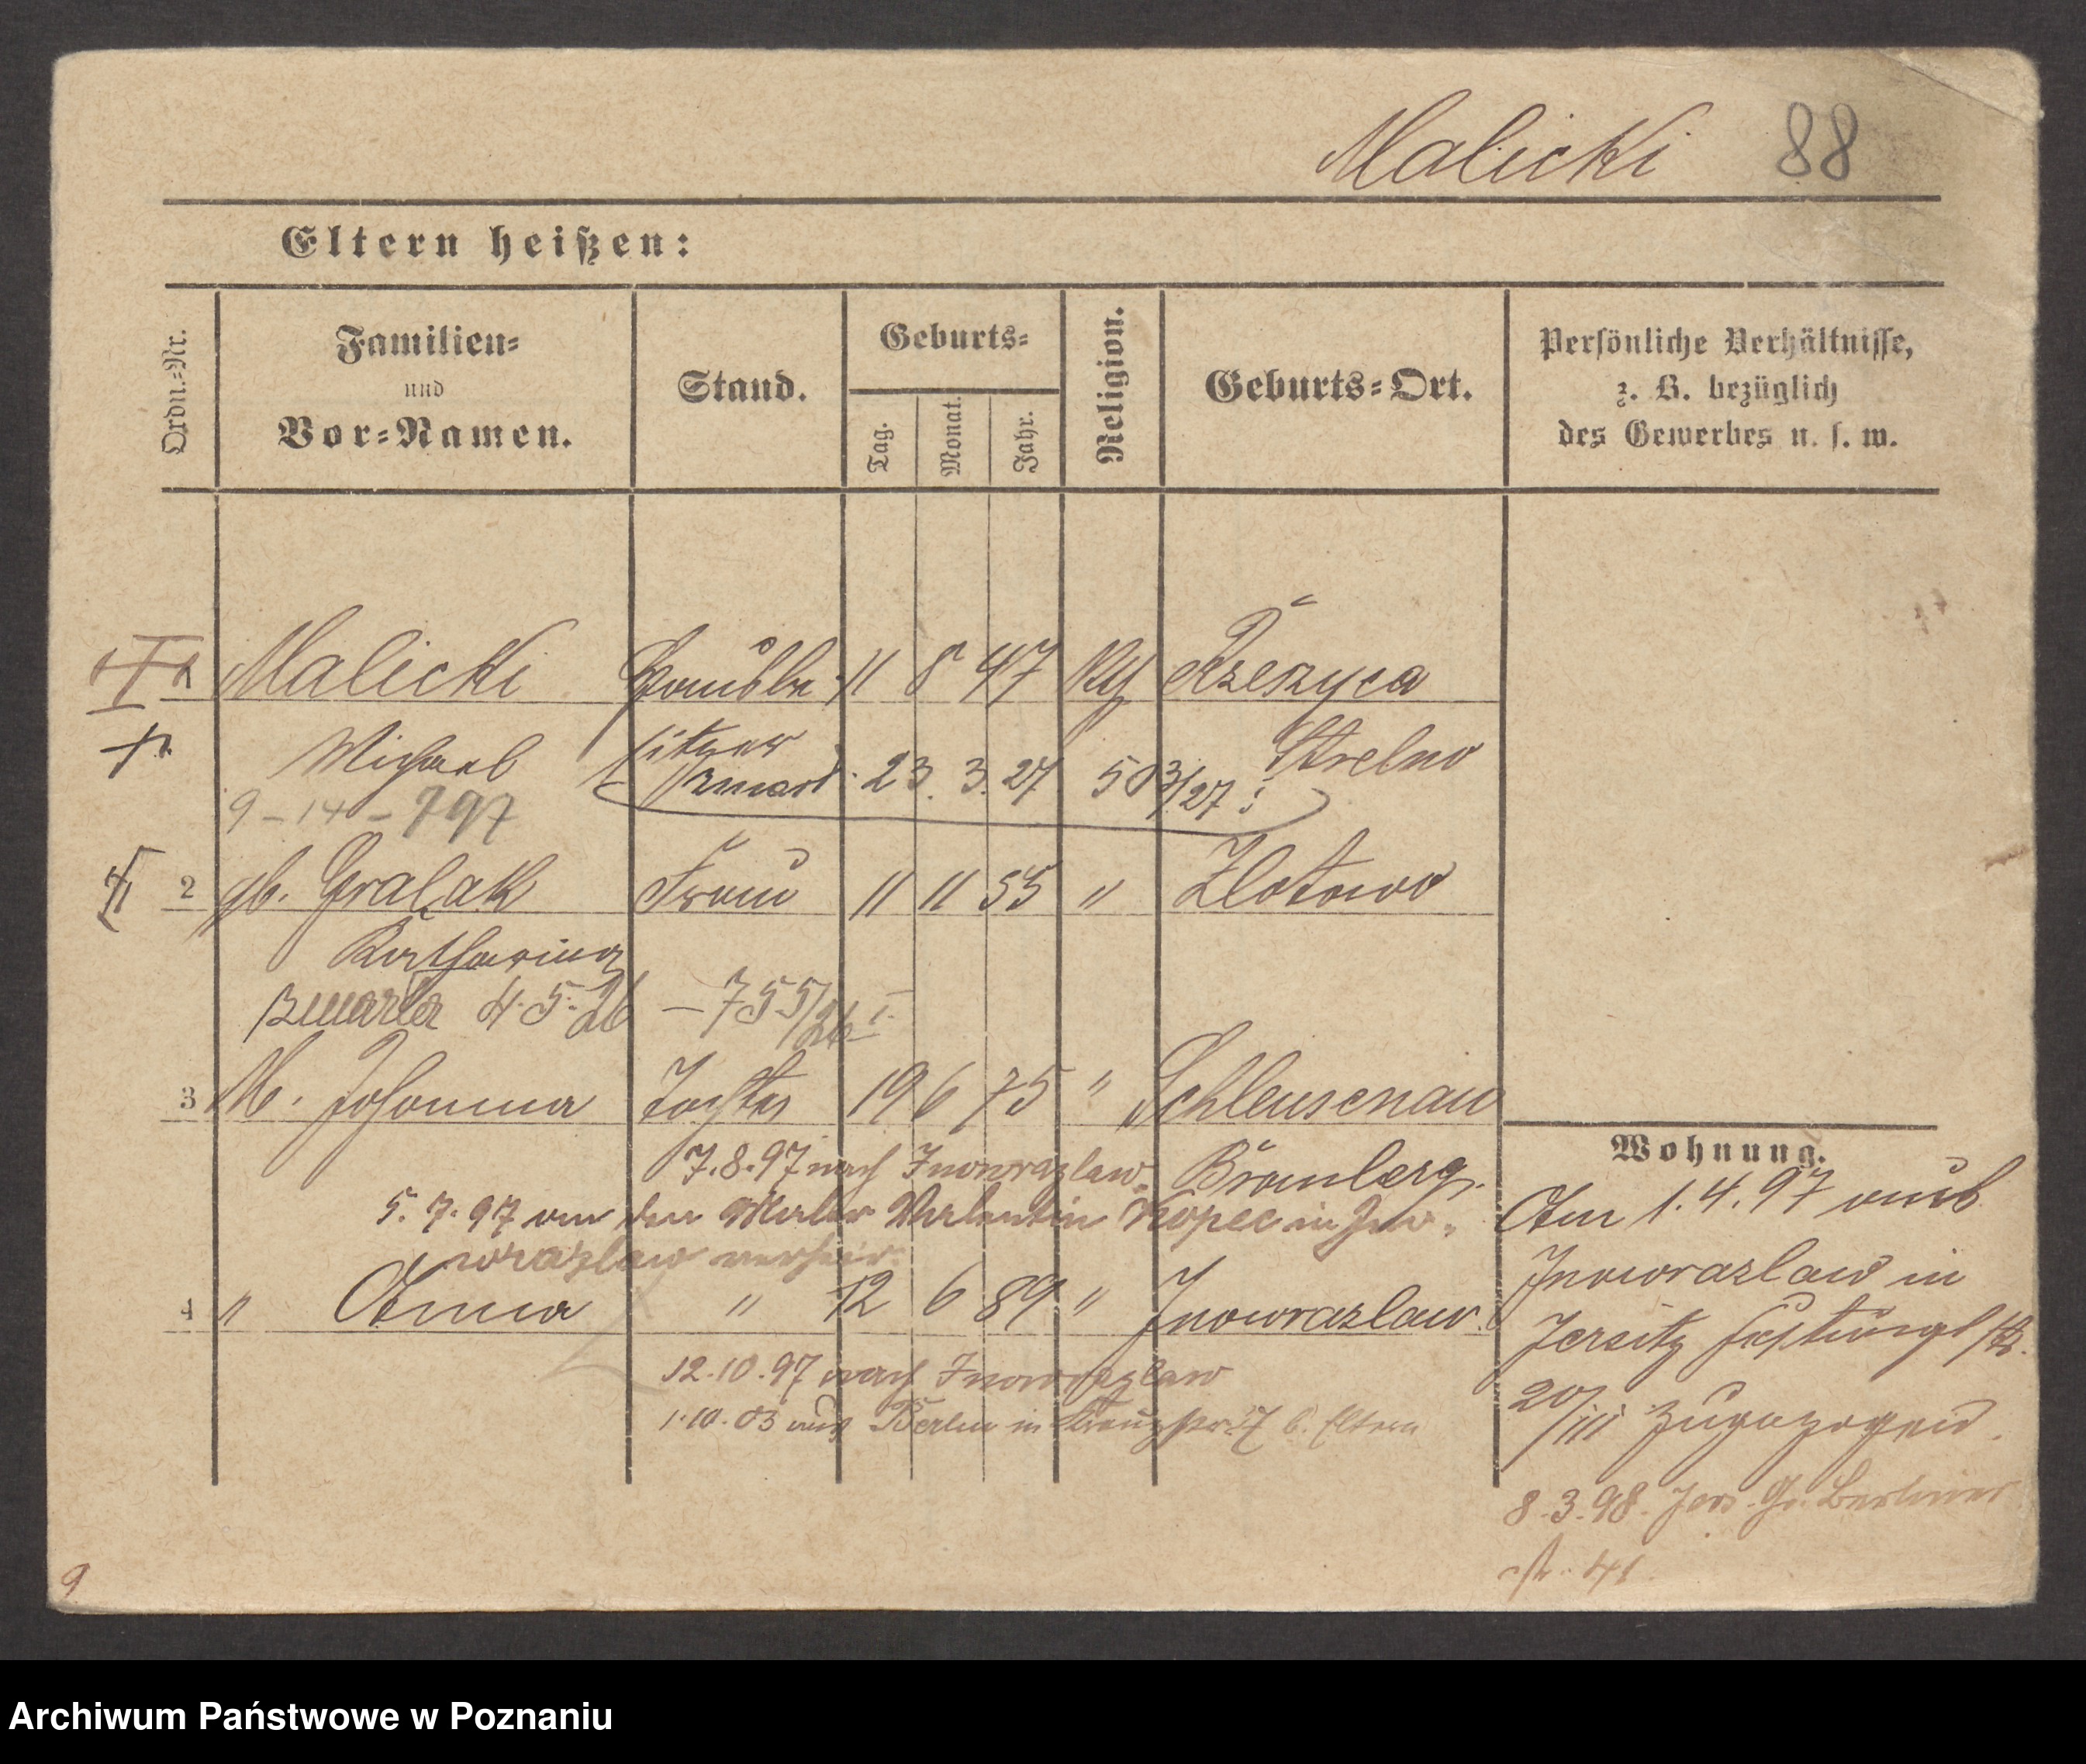 Malicki 88
Eltern heißen:
Ordn.-Nr.
Familien-
und
Vor-Namen.
Stand.
Geburts-
Tag.
Monat.
Jahr.
Religion.
Geburts-Ort.
Persönliche Verhältnisse,
z. B. bezüglich
des Gewerbes u. s. w.
Malicki Hausbe- 11 8 47 Rzeszyca
Michael sitzer Strelno
zmarł 23. 3. 27 503/27 I
9-14-797
2 gb. Gralak Frau 11 11 55 " Zlotowo
Katharina
zmarła 4.5.26 — 755/26 I.
3 M. Johanna Tochter 19 6 75 " Schleusenau
7.8.97 nach Inowrazlaw. Bromberg.
5.7.97 von den Maler Valentin Kopec in Ino-
wrazlaw verheir.
4 " Anna " 12 6 89 " Inowrazlaw.
12.10.97 nach Inowrazlaw
1.10.03 aus Berlin in b. Eltern
Wohnung.
Am 1.4.97 aus
Inowrazlaw in
Jersitz
20/III zugezogen.
8.3.98. Jers. Gr. Berliner
str. 41.
9
Archiwum Państwowe w Poznaniu